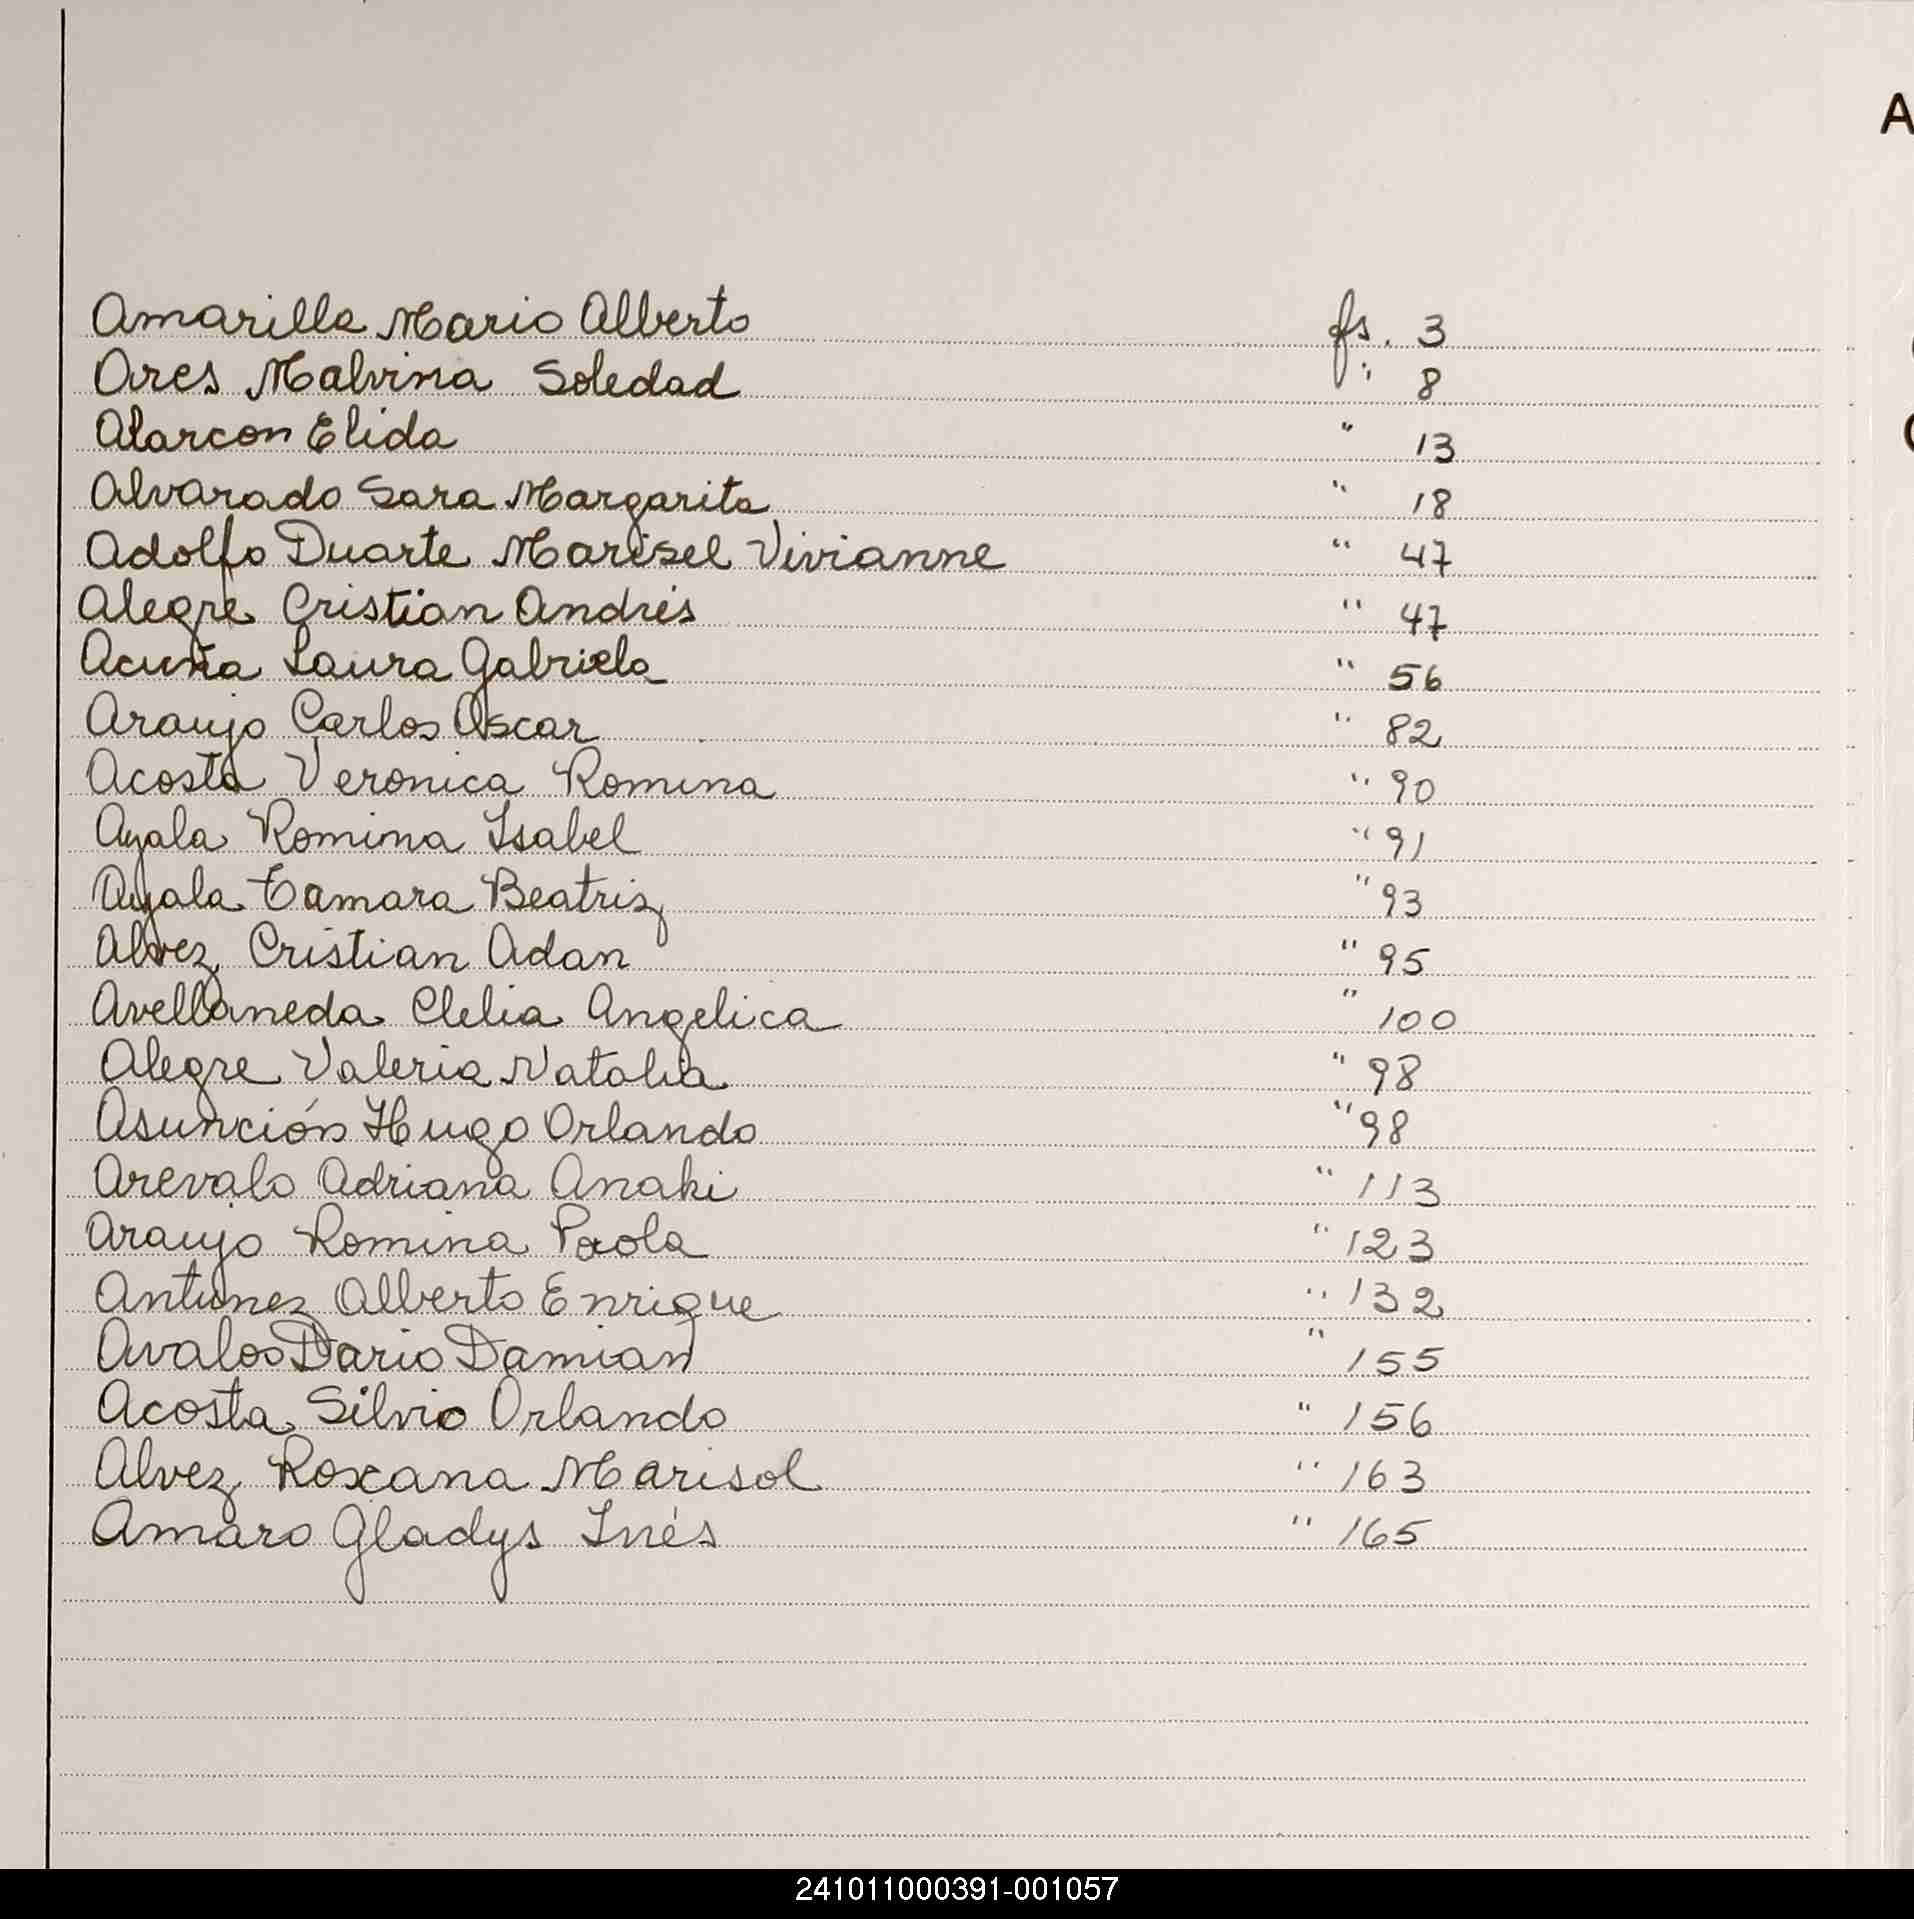 A
Amarilla Mario Alberto fs. 3
Ares Malvina Soledad " 8
Alarcon Elida " 13
Alvarado Sara Margarita " 18
Adolfo Duarte Marisel Vivianne " 47
Alegre Cristian Andrés " 47
Acuña Laura Gabriela " 56
Araujo Carlos Oscar " 82
Acosta Veronica Romina " 90
Ayala Romina Isabel " 91
Ayala Tamara Beatriz " 93
Alvez Cristian Adan " 95
Avellaneda Clelia Angelica " 100
Alegre Valeria Natalia " 98
Asunción Hugo Orlando " 98
Arevalo Adriana Anahi " 113
Araujo Romina Paola " 123
Antunez Alberto Enrique " 132
Avalos Dario Damian " 155
Acosta Silvio Orlando " 156
Alvez Roxana Marisol " 163
Amaro Gladys Inés " 165
241011000391-001057